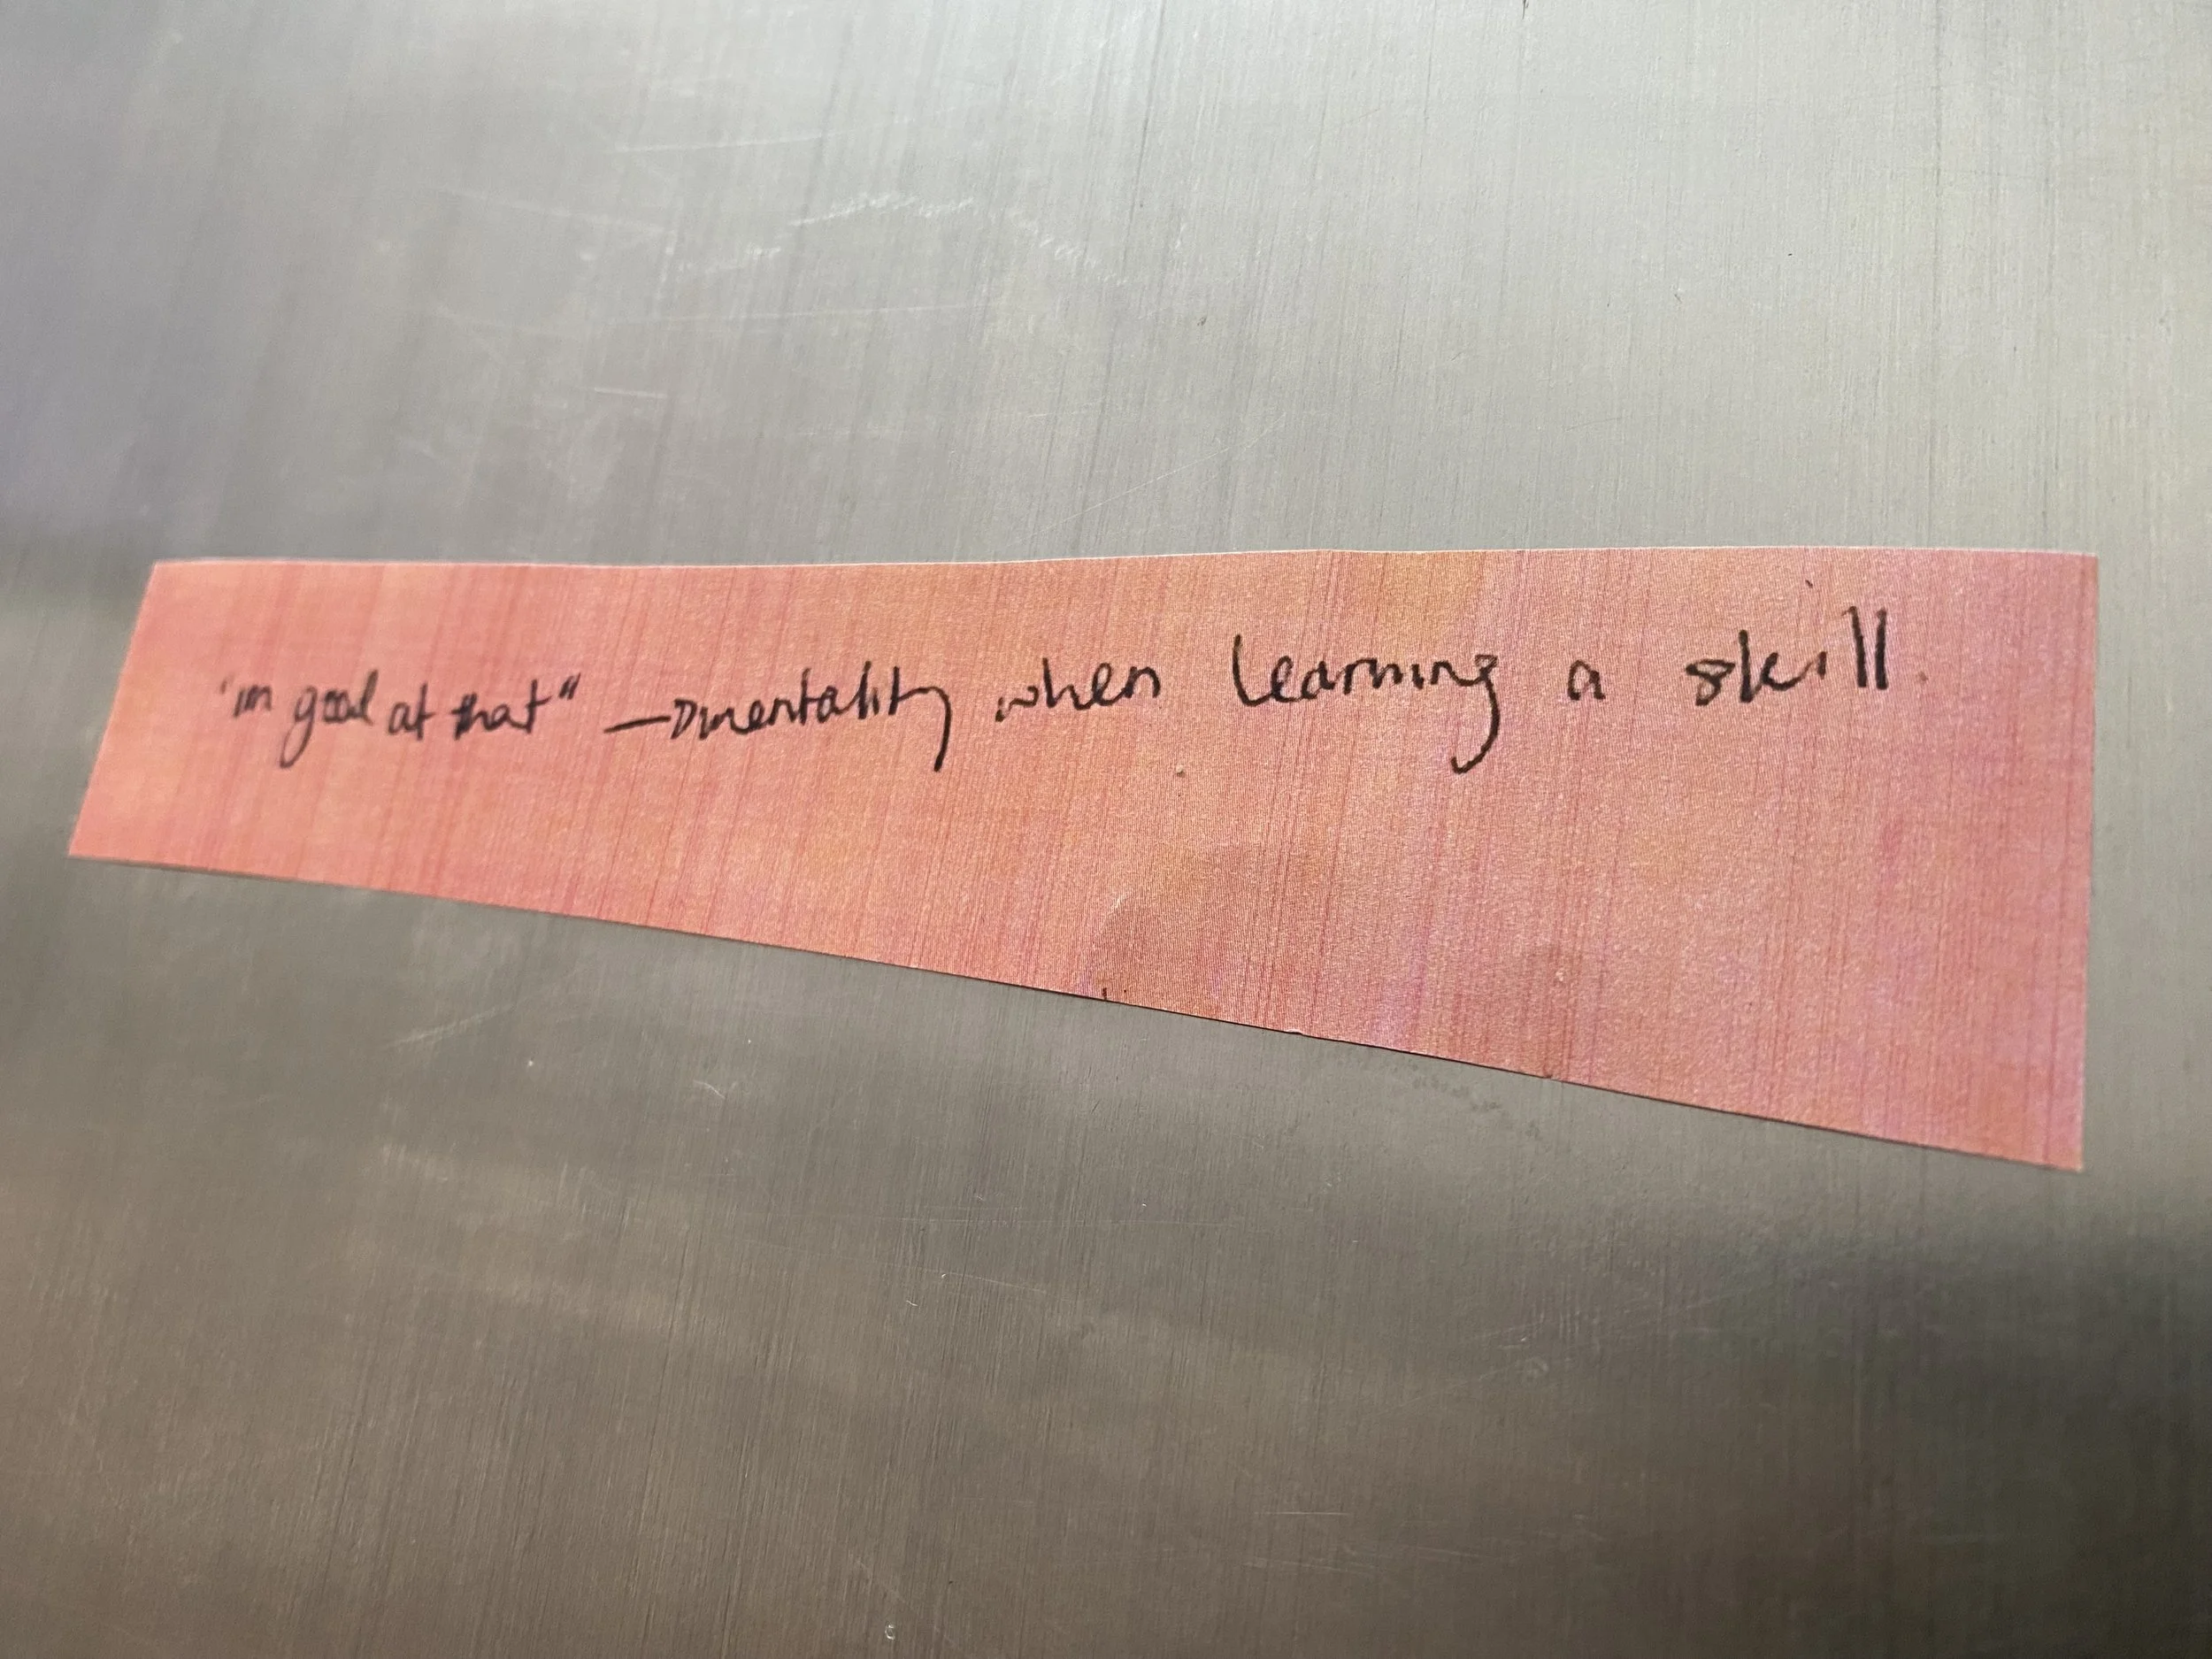 "im good at that" → mentality when learning a skill